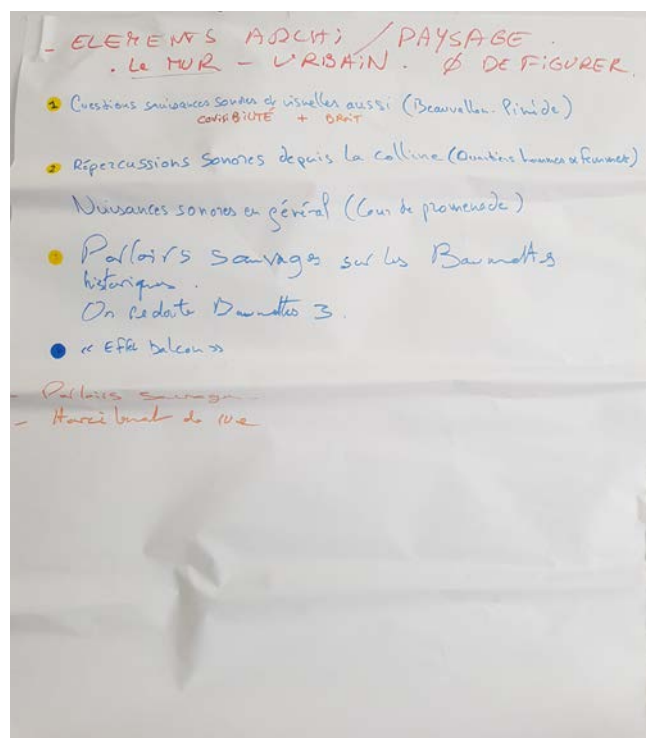 - ELEMENTS ARCHI / PAYSAGE.
. LE MUR - URBAIN. Ø DEFIGURER.
1 Questions nuisances sonores & visuelles aussi (Beauvallon. Pinède)
COVISIBILITÉ + BRUIT
2 Répercussions sonores depuis la colline (Quartiers hommes & femmes)
Nuisances sonores en général (Cour de promenade)
Parloirs sauvages sur les Baumettes
historiques.
On redoute Baumettes 3.
« Effet balcon »
- Parloirs sauvages
- Harcèlement de rue